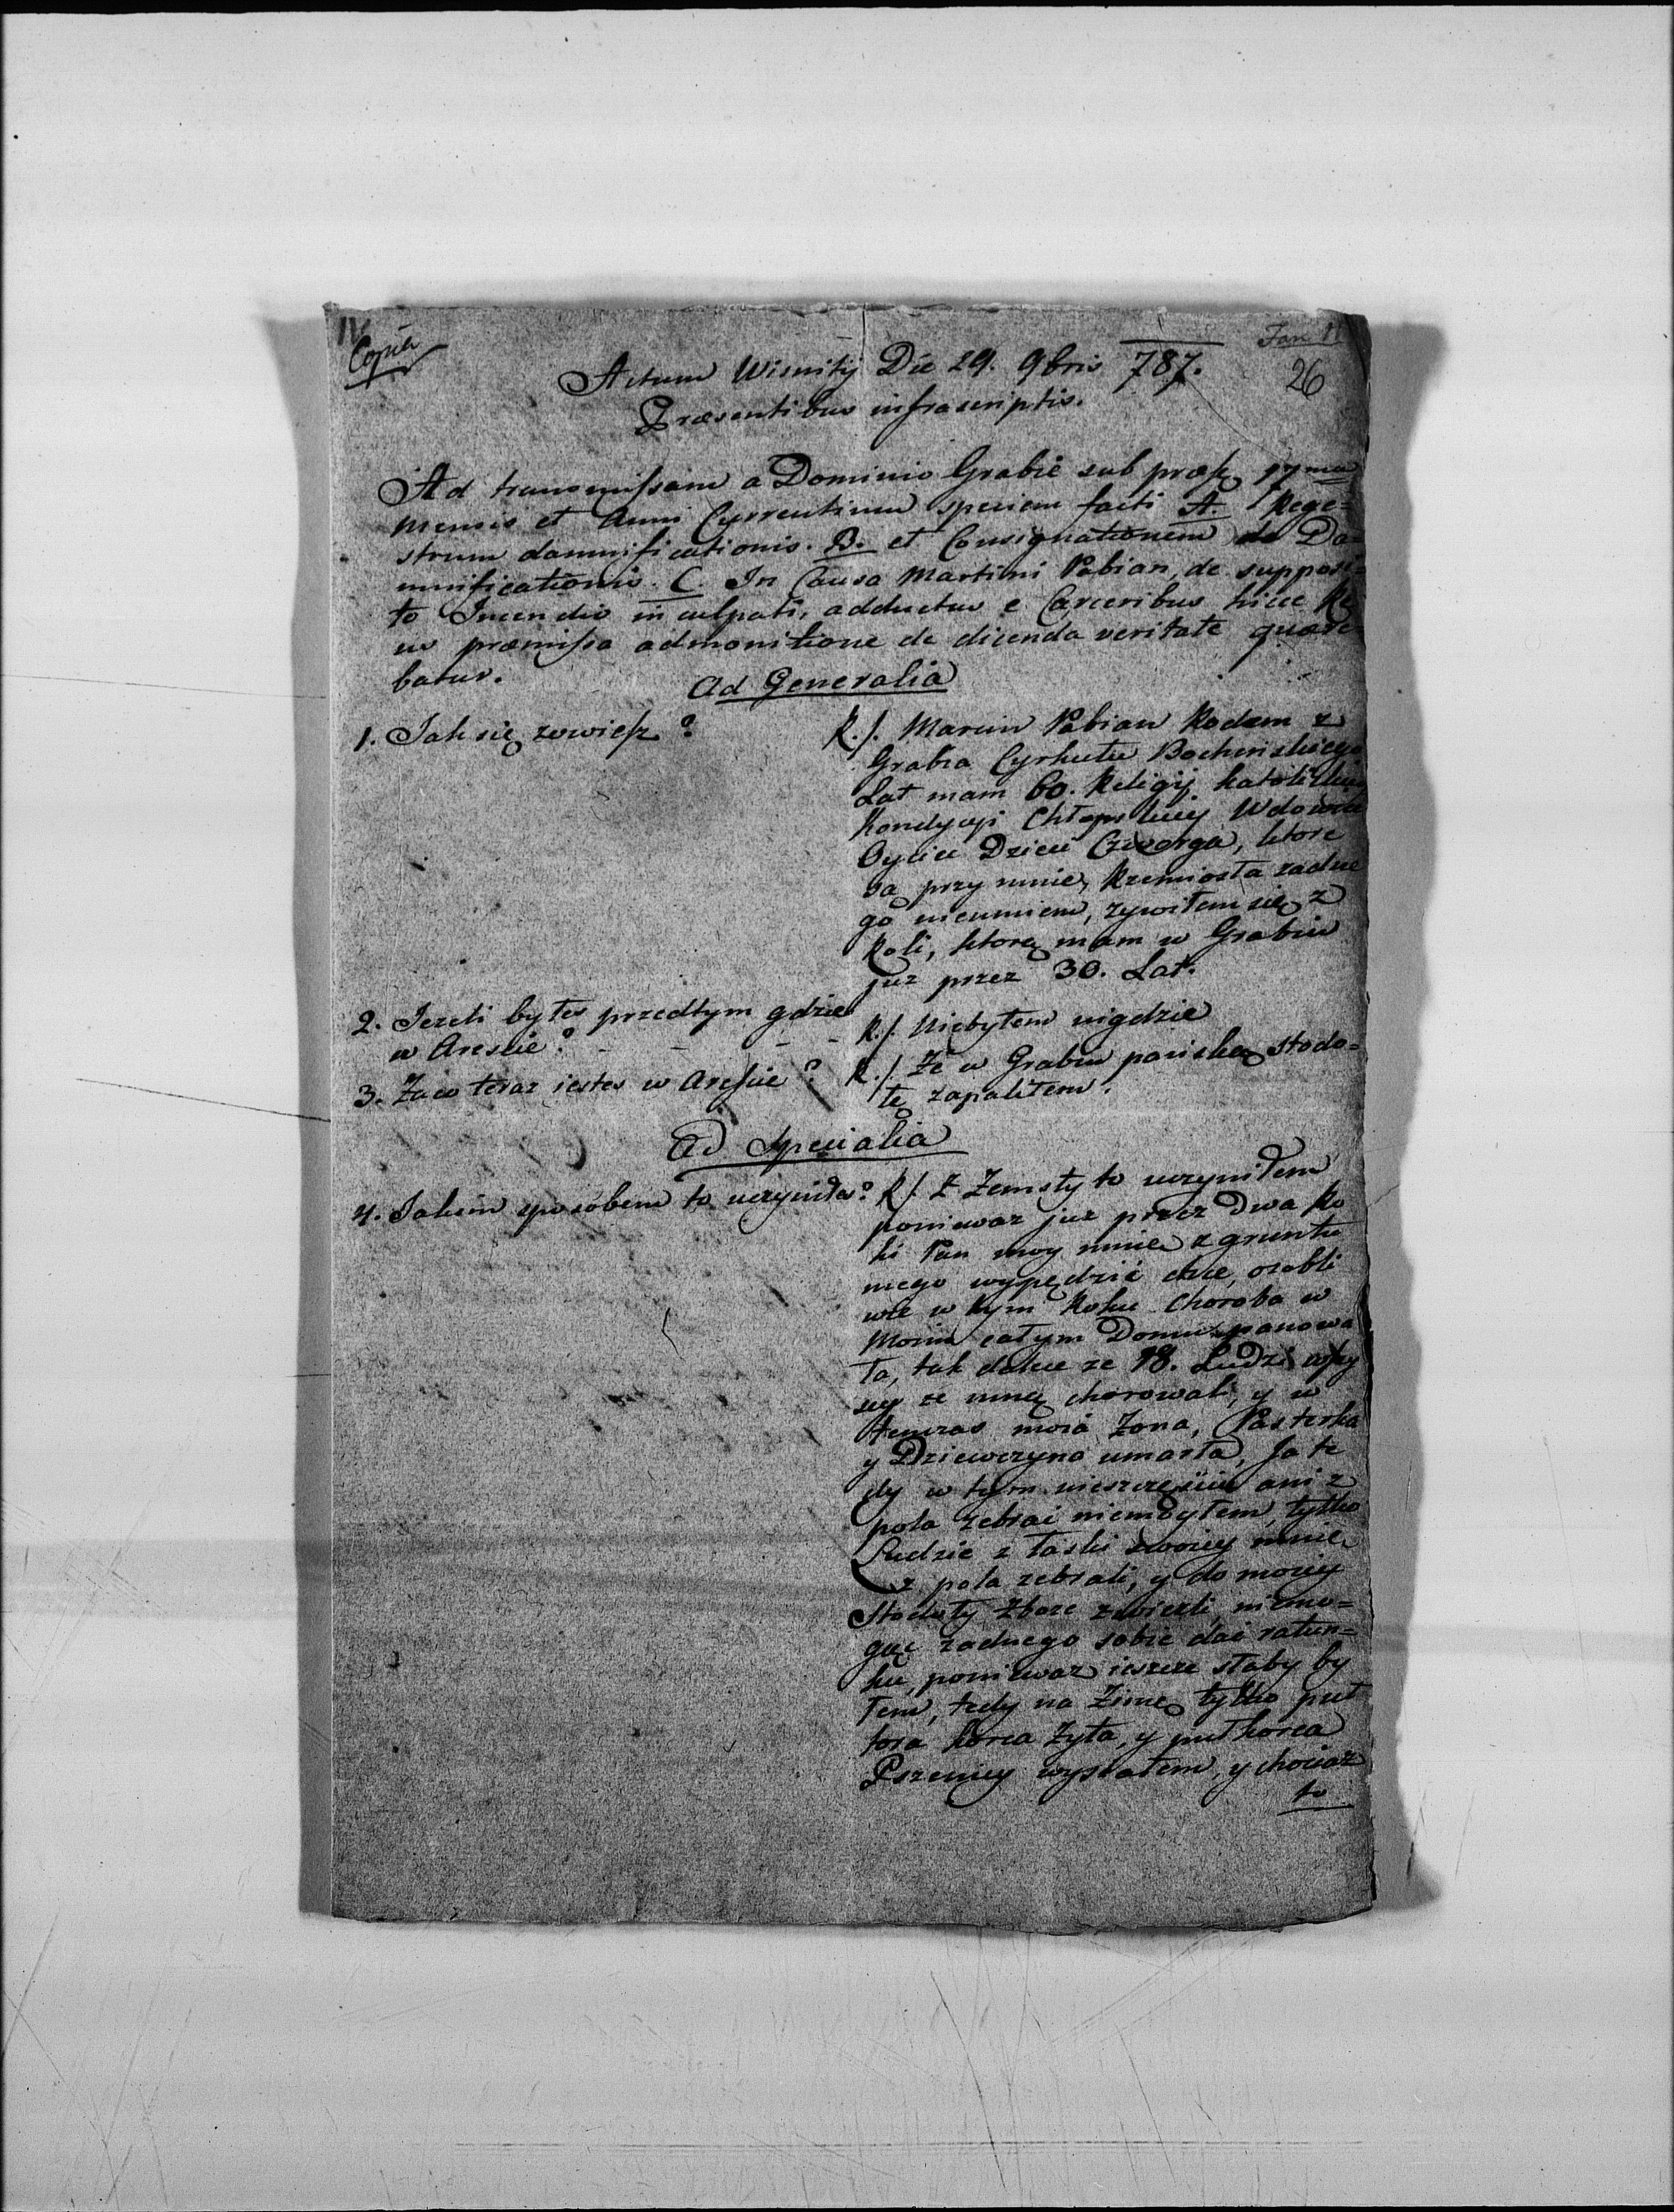 IV
Copia
Fan 11
26
Actum Wisnitij Die 29. 9bris 787.
Præsentibus infrascriptis.
Ad transmissam a Dominio Grabie sub præs. 17ma
mensis et Anni Currentium speciem facti A. Rege=
strum damnificationis. B. et Consignationem de Da=
mnificationis. C. In Causa Martini Pabian, de supposi=
to Incendio inculpati, adductus e Carceribus hicce Re
us præmissa admonitione de dicenda veritate quære=
batur.
Ad Generalia
1. Jak się zowiesz?
R./. Marcin Pabian Rodem z
Grabia Cyrkułu Bocheńskiego
Lat mam 60. Religij katolickiey
Kondycyi Chłopskiey Wdowiec
Oyciec Dzieci Czworga, ktore
są przy mnie, Rzemiosła zadne
go nieumiem, zywiłem się z
Roli, ktorą mam w Grabiu
juz przez 30. Lat.
2. Jezeli byłes przedtym gdzie
w Arescie? - - - -
R./. Niebyłem nigdzie
3. Zaco teraz jestes w Areszcie?
R./. Że w Grabiu pańską stodo=
łę zapaliłem.
Ad Specialia
4. Jakim sposobem to uczyniłes?
R/. Z Zemsty to uczyniłem
poniewaz juz przez Dwa Ro
ki Pan moy mnie z gruntu
mego wypędzić chce, osobli
wie w tym Roku Choroba w
Moim całym Domu panowa
ła, tak dalece ze 18. Ludzi wszy
scy ze mną chorowali, y w
tenczas moia Zona, Pasterka
y Dziewczyna umarła, Ja te
dy w tym nieszczęściu ani z
pola zebrać niemogłem, tylko
Ludzie z łaski swoiey mnie
z pola zebrali, y do moiey
Stodoły Zboze zwiezli, niemo=
gąc zadnego sobie dać ratun=
ku, poniewaz ieszcze słaby by
łem, tedy na Zimę tylko puł
tora korca Zyta, y puł korca
Pszenicy wysiałem, y chociaz
to